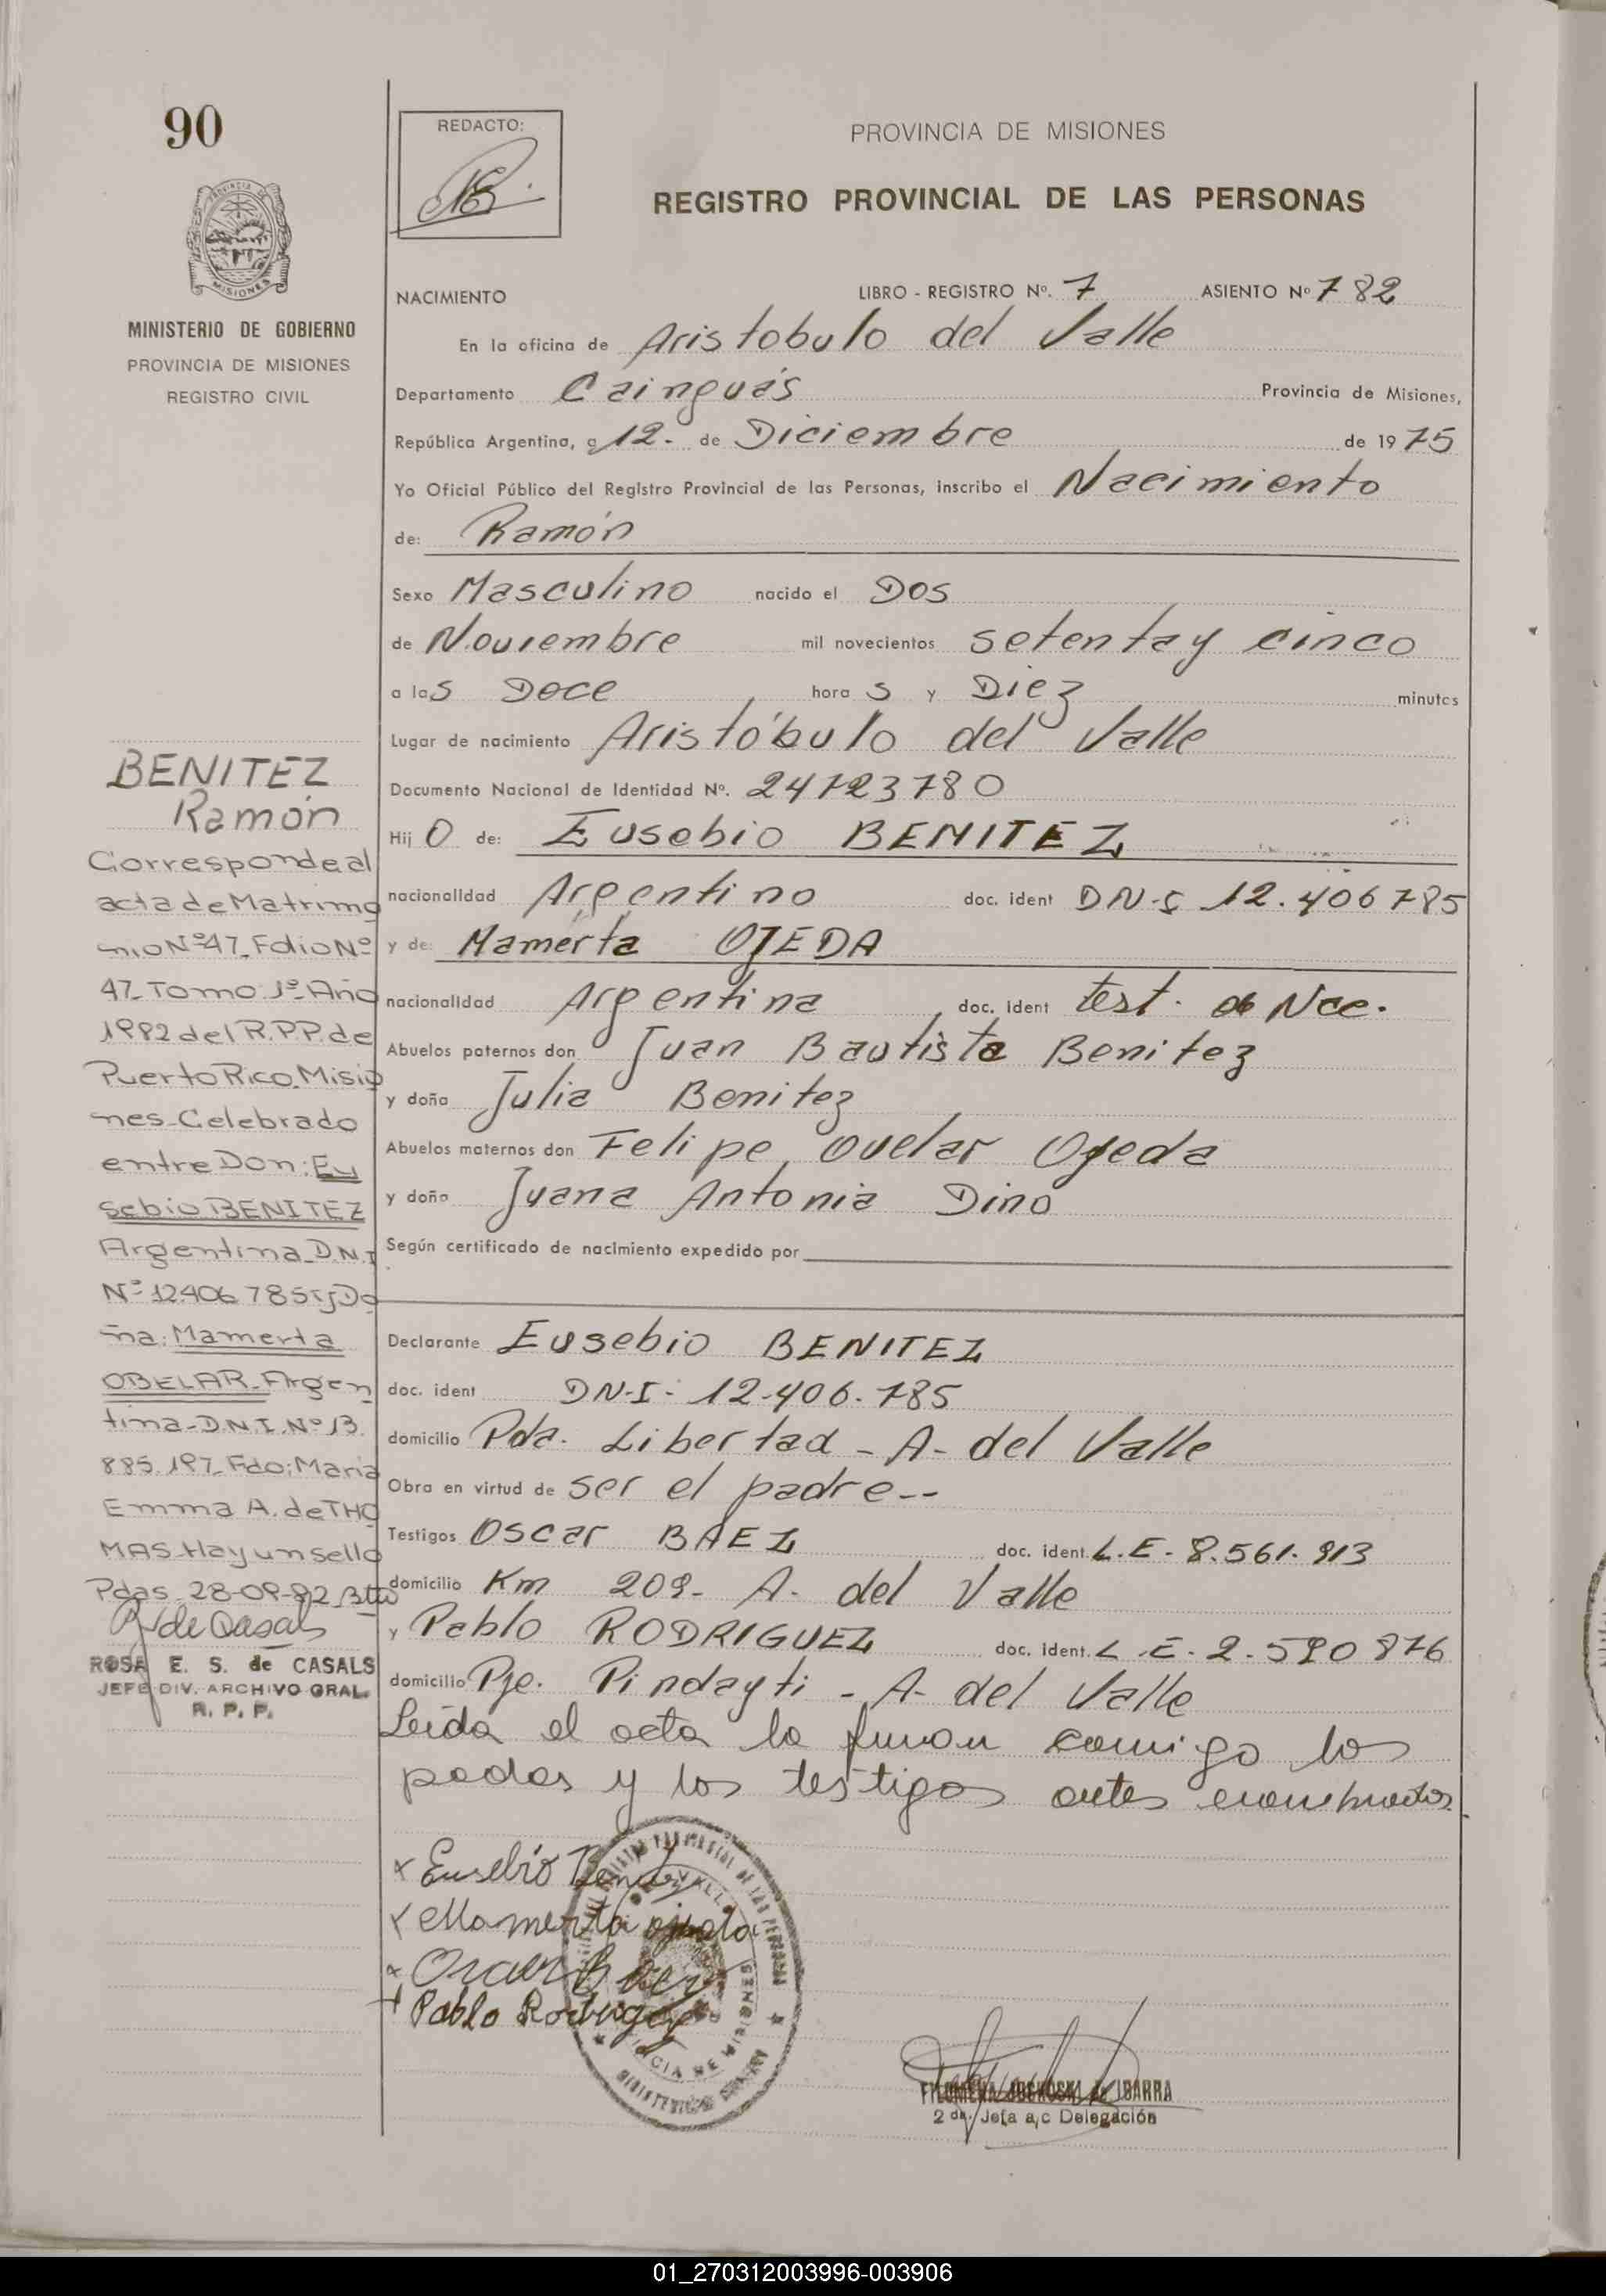 90
REDACTO:
PROVINCIA DE MISIONES
REGISTRO PROVINCIAL DE LAS PERSONAS
MISIONES
MINISTERIO DE GOBIERNO
PROVINCIA DE MISIONES
REGISTRO CIVIL
NACIMIENTO LIBRO - REGISTRO Nº. 7 ASIENTO Nº 782
En la oficina de Aristobulo del Valle
Departamento Cainguás Provincia de Misiones,
República Argentina, a 12. de Diciembre de 1975
Yo Oficial Público del Registro Provincial de las Personas, inscribo el Nacimiento
de: Ramón
Sexo Masculino nacido el Dos
de Noviembre mil novecientos setenta y cinco
a las Doce horas y Diez minutos
Lugar de nacimiento Aristóbulo del Valle
Documento Nacional de Identidad Nº. 24723780
Hijo de: Eusebio BENITEZ
nacionalidad Argentino doc. ident DN-I 12.406785
y de: Mamerta OJEDA
nacionalidad Argentina doc. ident test. de Nac.
Abuelos paternos don Juan Bautista Benitez
y doña Julia Benitez
Abuelos maternos don Felipe Ovelar Ojeda
y doña Juana Antonia Dino
Según certificado de nacimiento expedido por
Declarante Eusebio BENITEZ
doc. ident DN-I- 12-406-785
domicilio Pda. Libertad - A- del Valle
Obra en virtud de ser el padre--
Testigos Oscar BAEZ doc. ident. L.E- 8.561.913
domicilio Km 209- A. del Valle
y Pablo RODRIGUEZ doc. ident. L.E-2-590876
domicilio Pje. Pindayti - A- del Valle
Leida el acta la firman comigo los
padres y los testigos antes enombrados
BENITEZ
Ramón
Corresponde al
acta de Matrimo
nio Nº47. Folio Nº
47- Tomo 1º- Año
1982 del R.P.P. de
Puerto Rico. Misio
nes- Celebrado
entre Don: Eu
sebio BENITEZ
Argentina D.N.I
Nº 12406785 y Do
ña: Mamerta
OBELAR- Argen
tina- D.N.I. Nº 13.
885.197- Fdo: Maria
Emma A. de THO
MAS- Hay un sello
Pdas- 28-09-82
R de Casals
ROSA E. S. de CASALS
JEFE DIV. ARCHIVO GRAL.
R. P. P.
x Eusebio Benitez
x Mamerta ojeda
x Oscar Baez
+ Pablo Rodriguez
FILOMENA de IBARRA
2 da. Jefa a/c Delegación
01_270312003996-003906